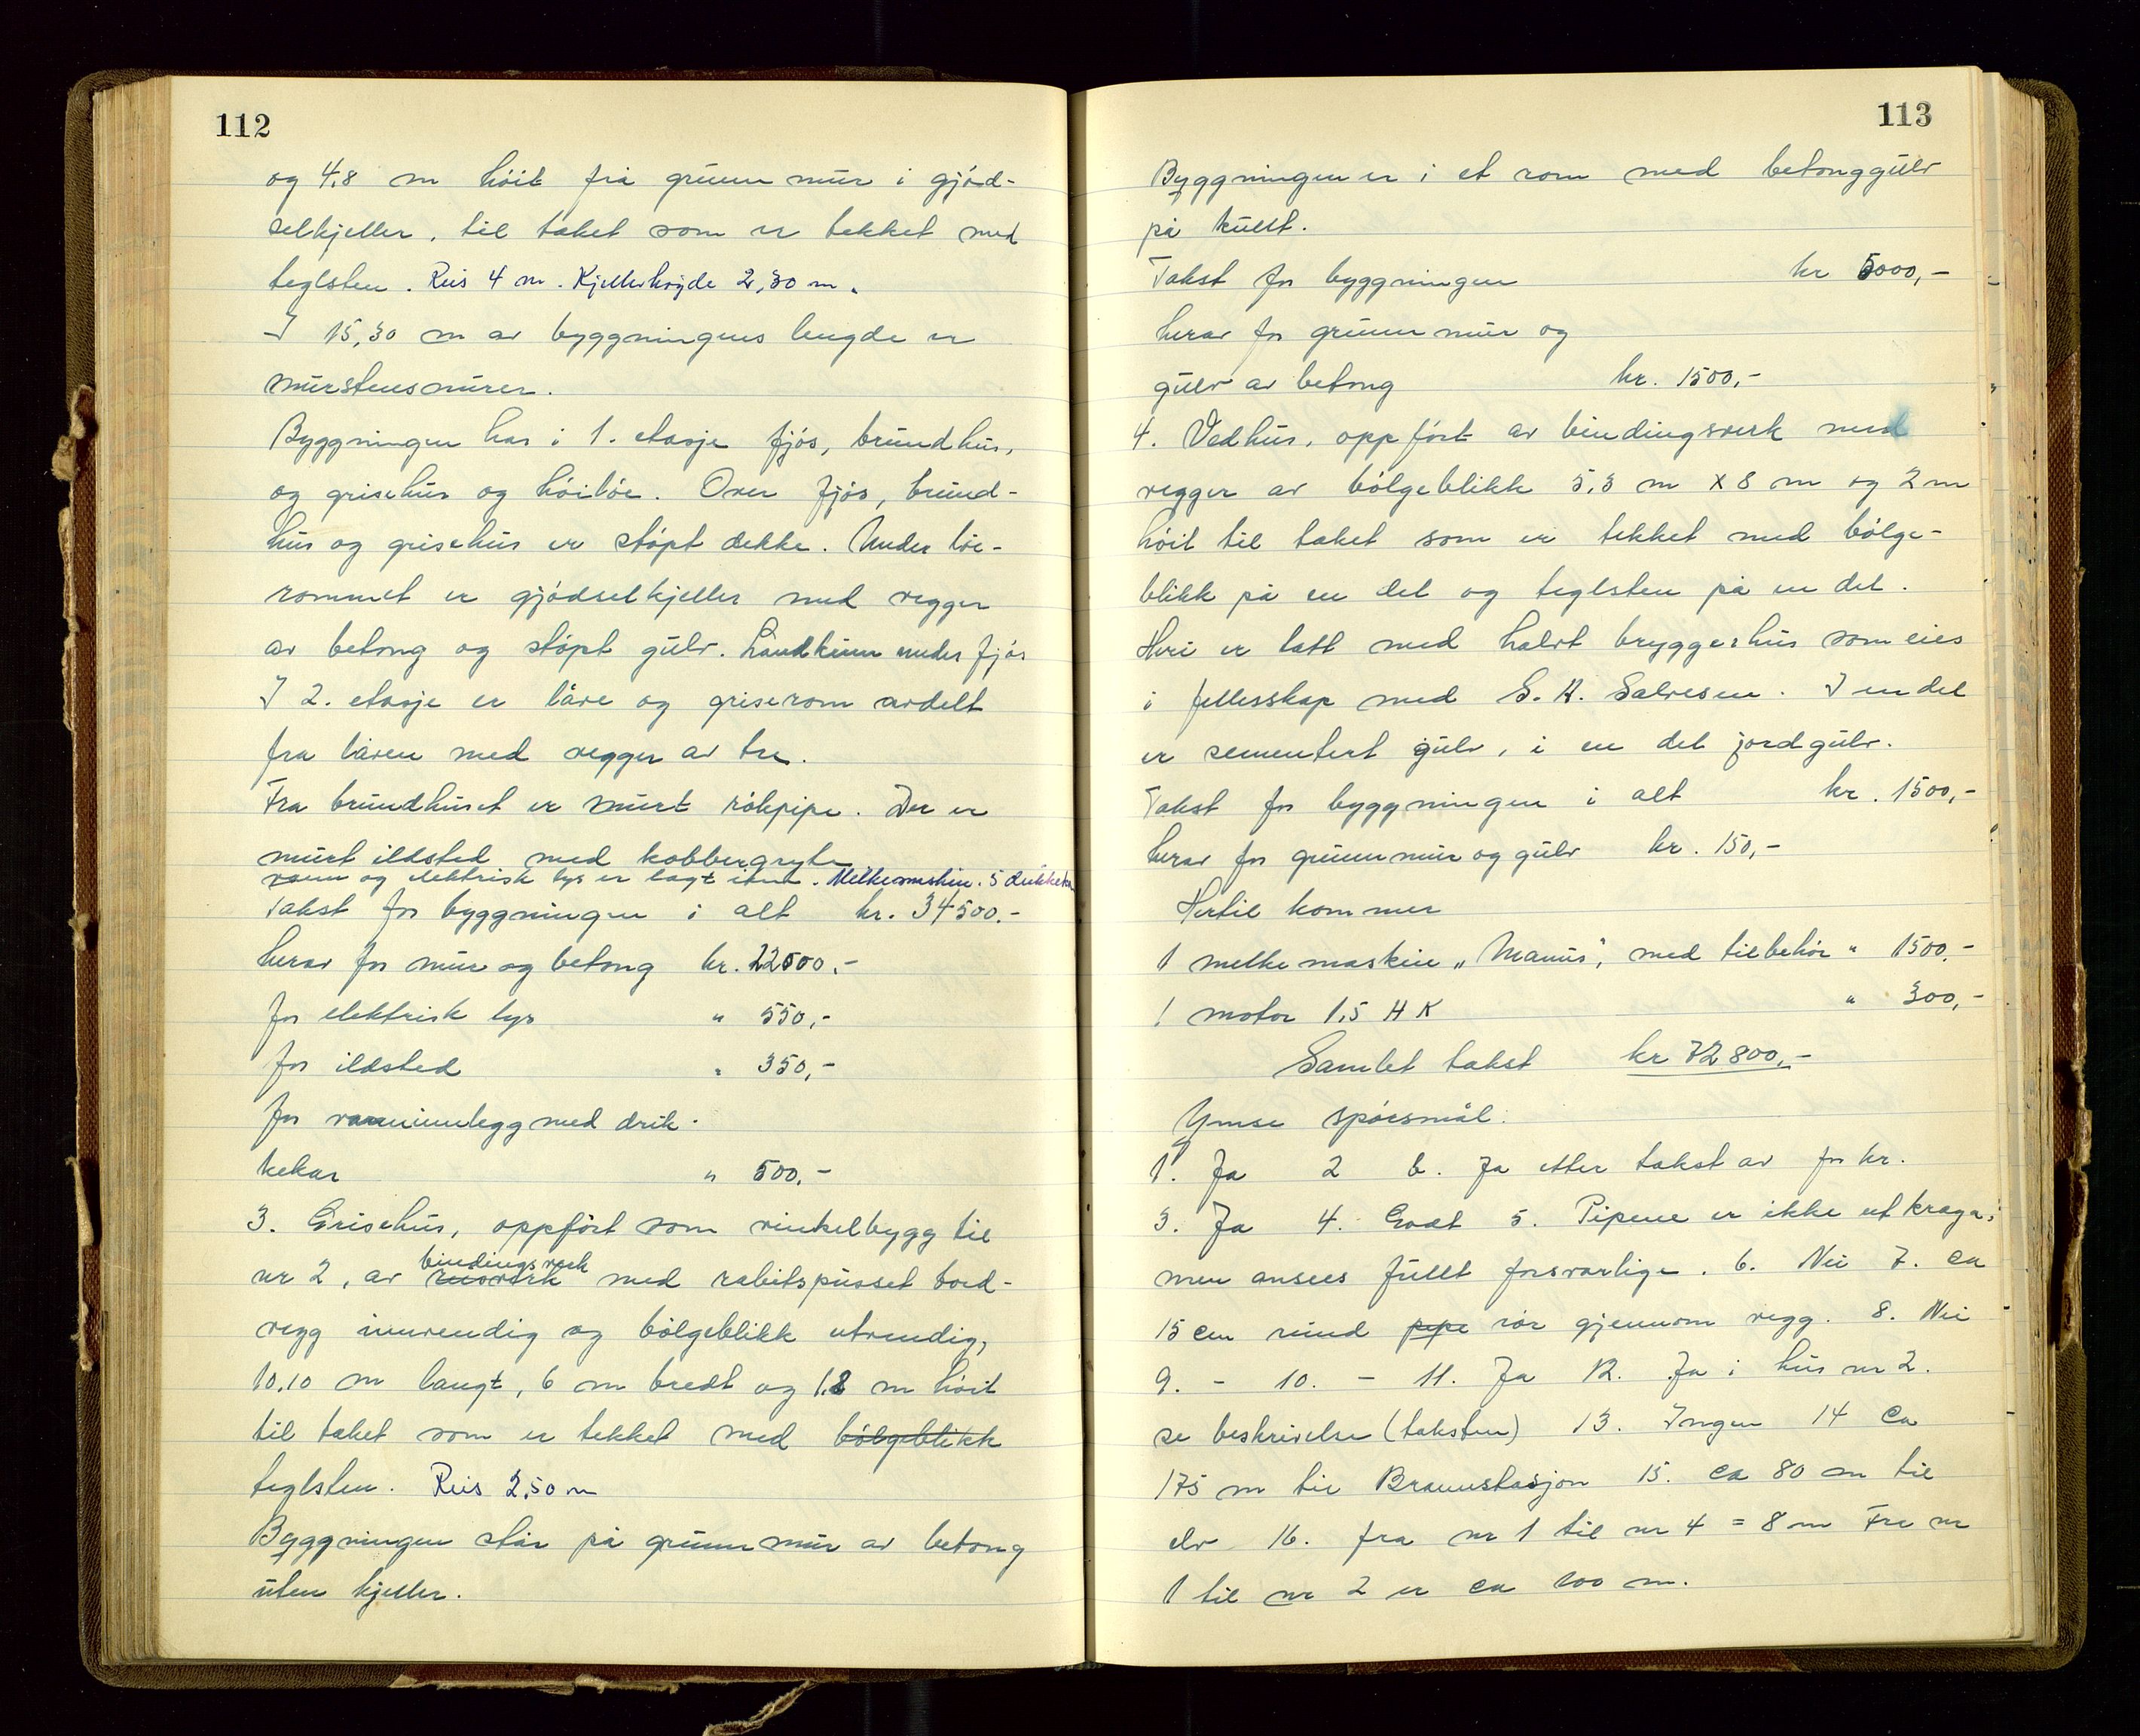 112
og 4,8 m höit fra grunnmur i gjöd-
selkjeller, til taket som er tekket med
teglsten. Reis 4 m. Kjellerhøyde 2,30 m.
I 15,30 m av byggningens lengde er
murstensmurer.
Byggningen har i 1. etasje fjös, brundhus,
og grisehus og höilöe. Over fjös, brund-
hus og grisehus er stöpt dekke. Under löe-
rommet er gjödselkjeller med vegger
av betong og stöpt gulv. Landkum under fjös
I 2. etasje er låve og griserom avdelt
fra låven med vegger av tre.
Fra brundhuset er murt rökpipe. Der er
murt ildsted med kobbergryte
vann og elektrisk lys er lagt inn. Melkemaskin. 5 drikkekar
Takst for byggningen i alt kr. 34500.-
herav for mur og betong kr. 22500.-
for elektrisk lys " 550,-
for ildsted " 350,-
for vanninnlegg med drik-
kekar " 500,-
3. Grisehus, oppfört som vinkelbygg til
bindingsverk
nr 2, av reisverk med rabitspusset bord-
vegg innvendig og bölgeblikk utvendig,
10,10 m langt, 6 m bredt og 1,8 m höit
til taket som er tekket med bölgeblikk
teglsten. Reis 2,50 m
Byggningen står på grunnmur av betong
uten kjeller.
113
Byggningen er i et rom med betonggulv
på kullt.
Takst for byggningen kr 5000,-
herav for grunnmur og
gulv av betong kr. 1500,-
4. Vedhus, oppfört av bindingsverk med
vegger av bölgeblikk 5,3 m x 8 m og 2 m
höit til taket som er tekket med bölge-
blikk på en del og teglsten på en del.
Heri er tatt med halvt bryggerhus som eies
i fellesskap med S. H. Salvesen. I en del
er sementert gulv, i en del jordgulv.
Takst for byggningen i alt kr. 1500,-
herav for grunnmur og gulv kr. 150,-
Hertil kommer
1 melkemaskin „Manus", med tilbehör " 1500,-
1 motor 1,5 H K " 300,-
Samlet takst kr 72800,-
Ymse spörsmål:
1. Ja 2 b. Ja etter takst av for kr.
3. Ja 4. Godt 5. Pipene er ikke utkraga;
men ansees fullt forsvarlige. 6. Nei 7. ca
15 cm rund pipe rör gjennom vegg. 8. Nei
9. - 10. - 11. Ja 12. Ja i hus nr 2.
se beskrivelse (taksten) 13. Ingen 14 Ca
175 m til Brannstasjon 15. ca 80 m til
elv 16. fra nr 1 til nr 4 = 8 m Fra nr
1 til nr 2 er ca 100 m.